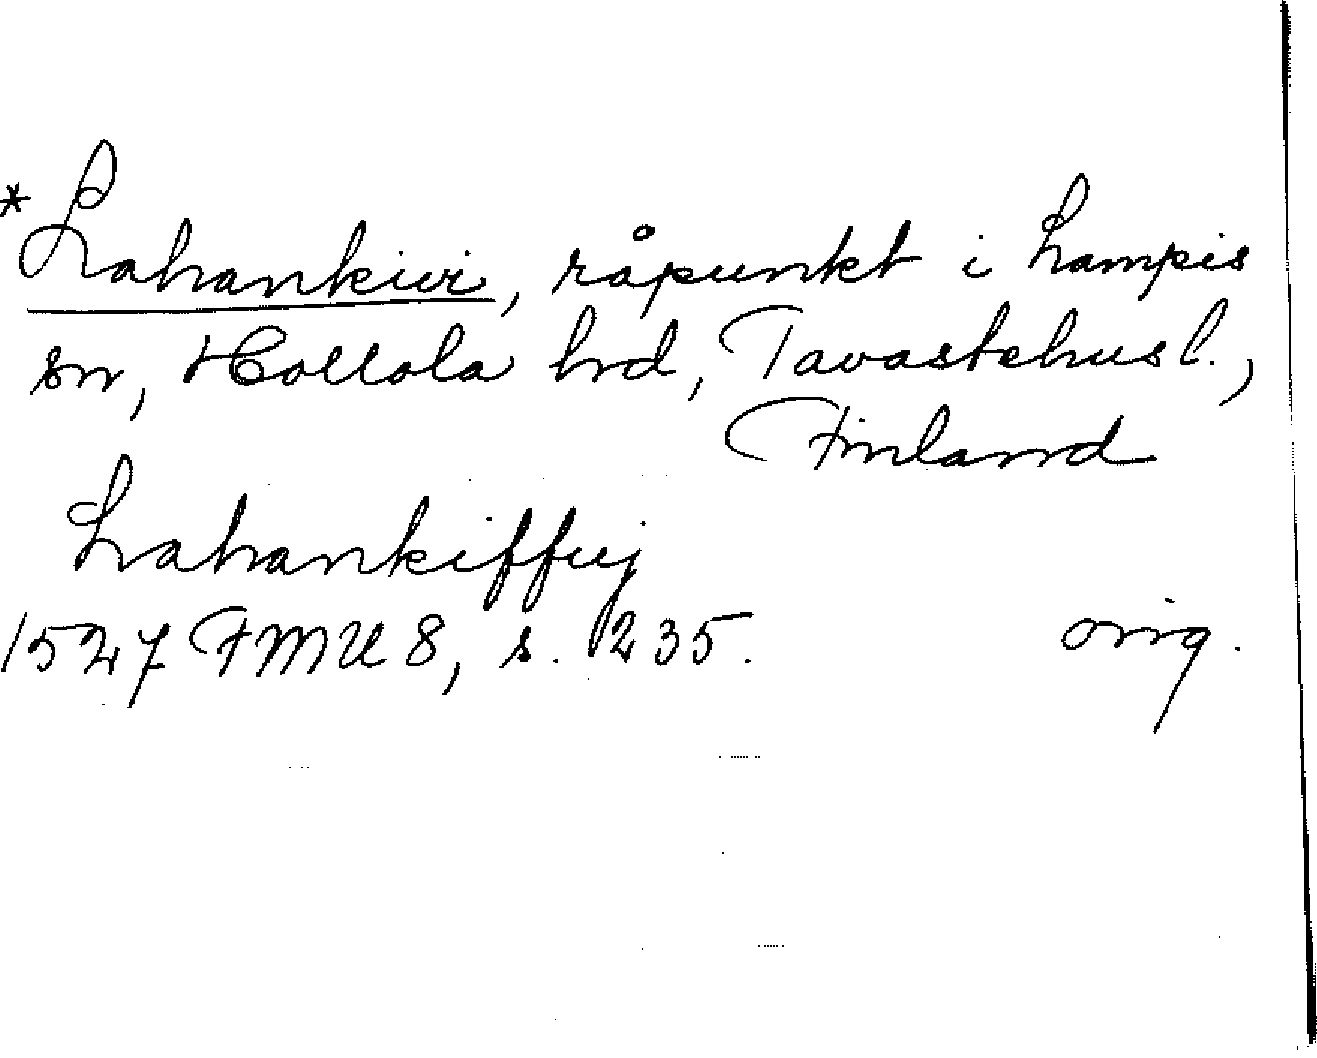 *Lahankivi, råpunkt i Lampis
sn, Hollola hd, Tavastehus l.,
Finland
Lahankiffuj
1527 FMU 8, s. 235. orig.